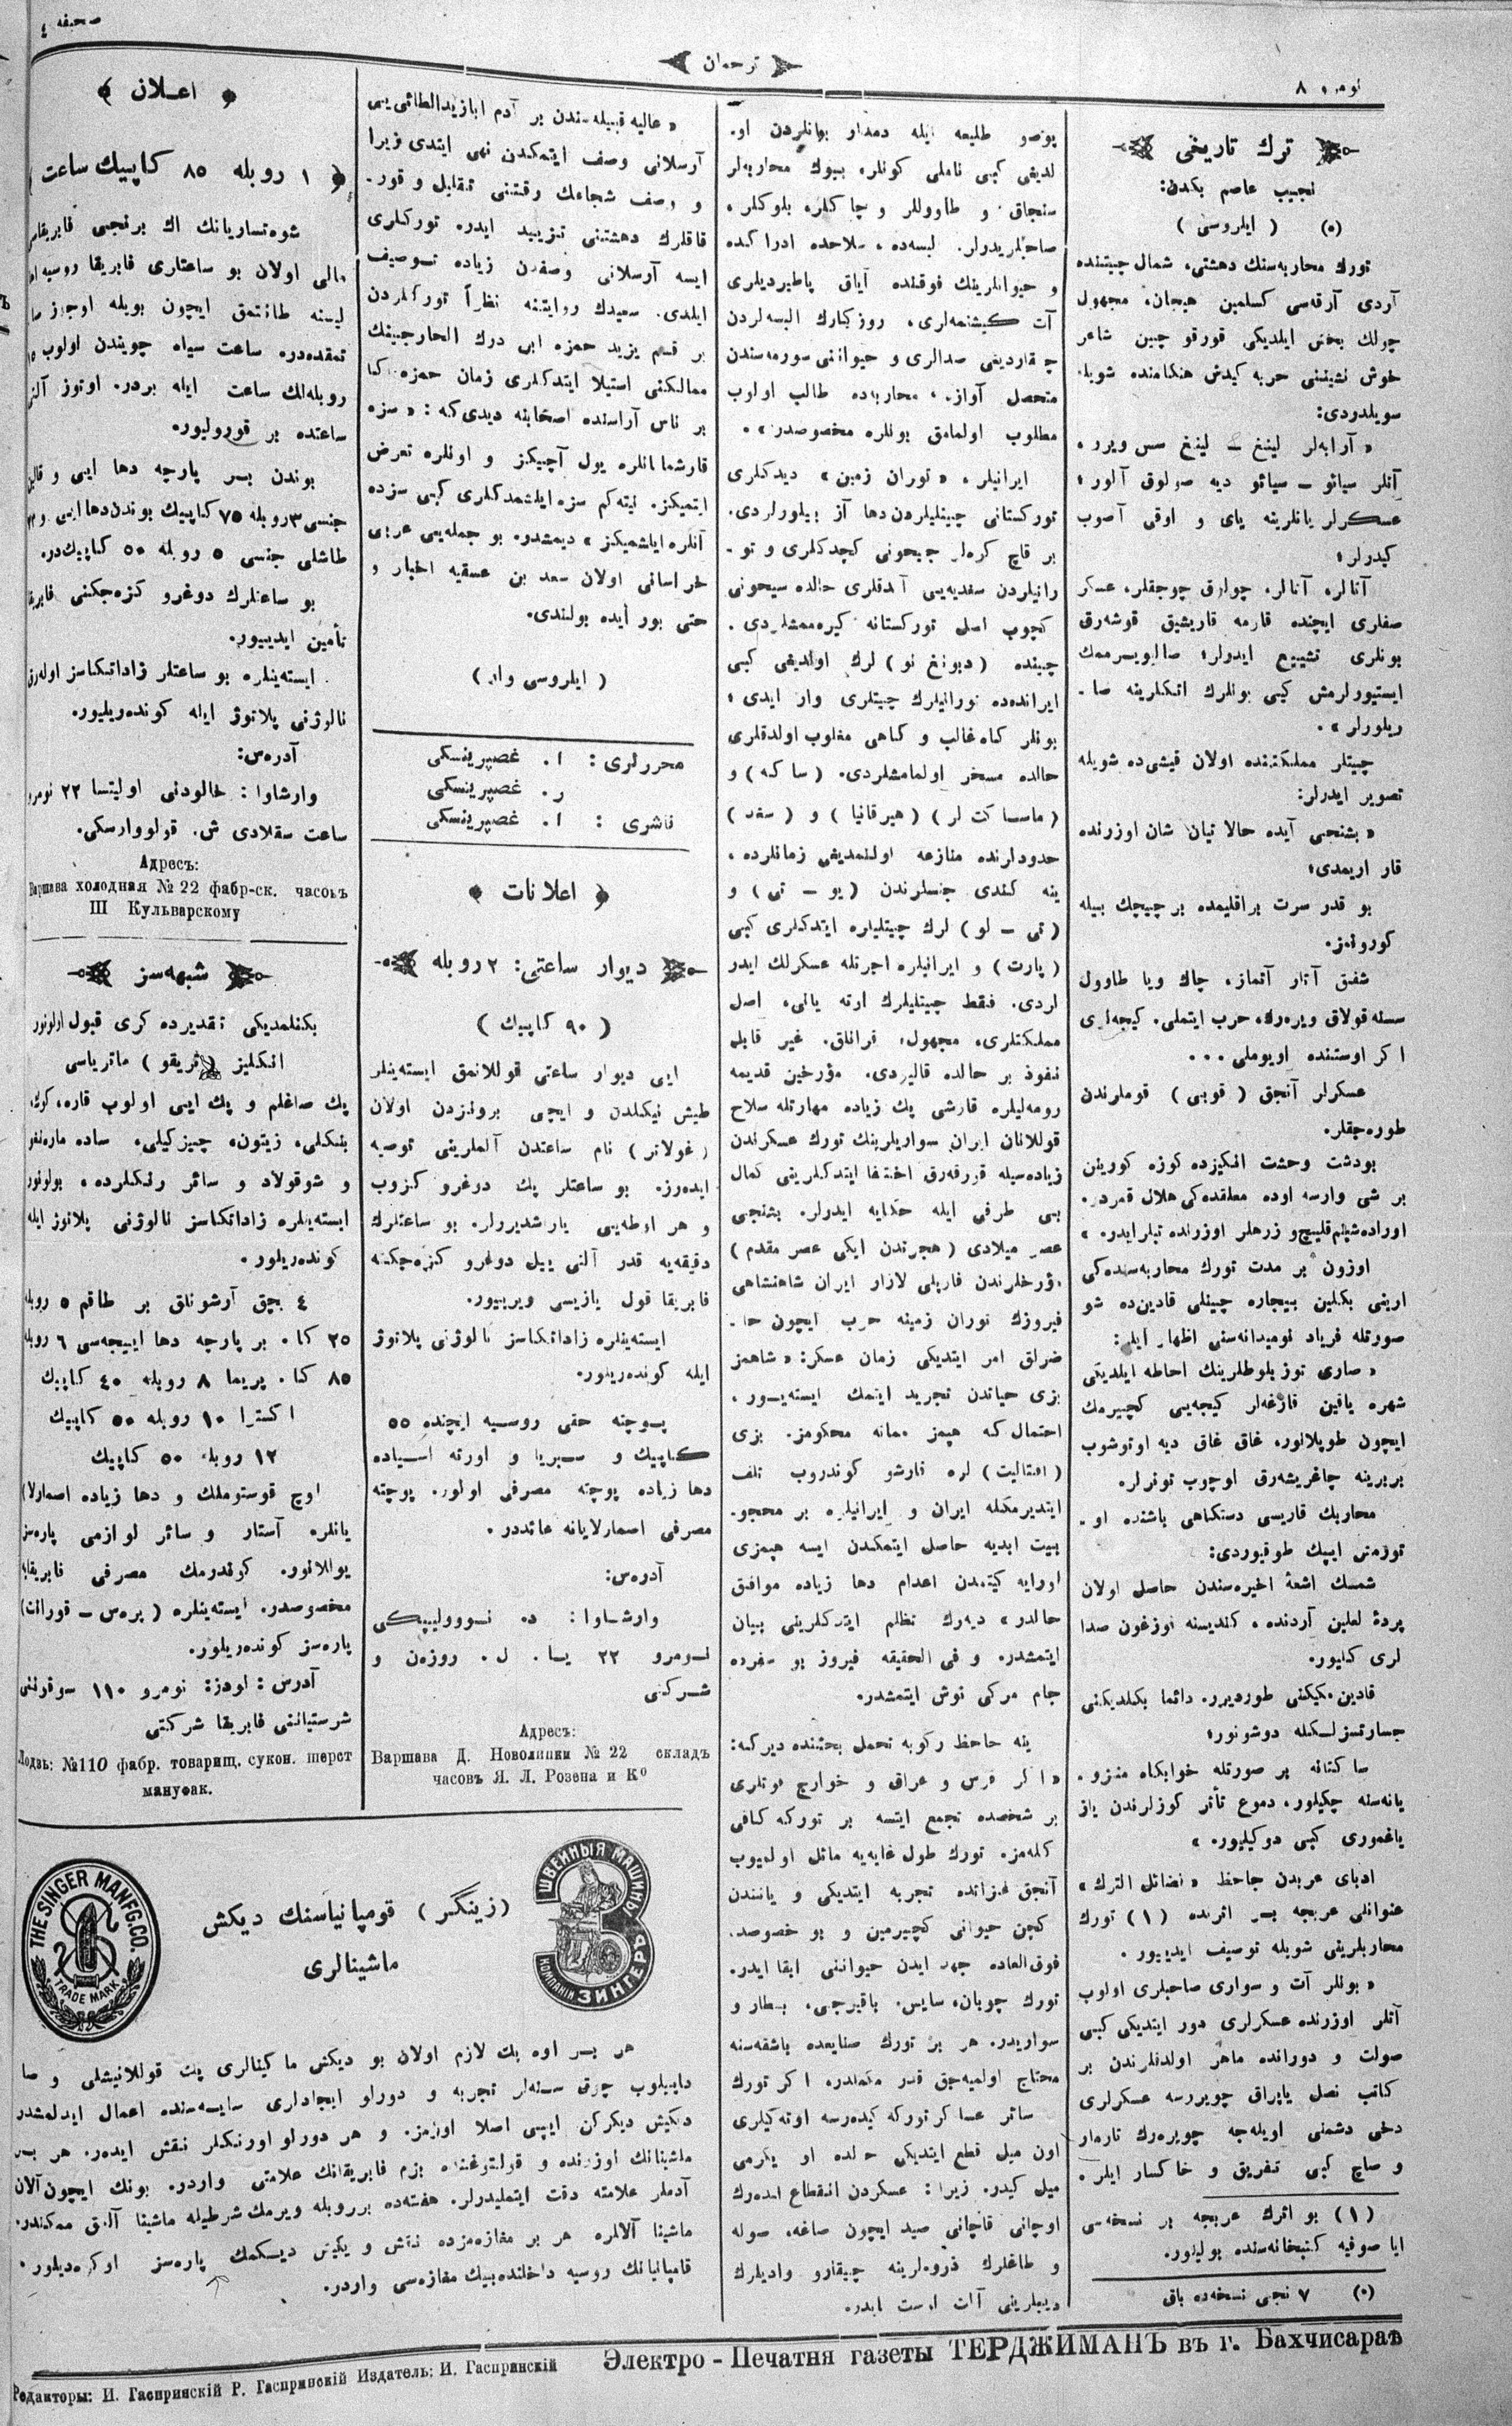 صحیفه ٤
ترجمان
نومرو ٨
ترك تاریخی
نجیب عاصم بكدن:
(٥) (ایلروسی)
تورك محاربه‌سنك دهشتی، شمال چیننده
آردی آرقه‌سی كسلمین هیجان، مجهول
چولك بخش ایلدیكی قورقو چین شاعر
خوش نشیننی حربه كیدش هنكامنده شویله
سویلدردی:
« آرابه‌لر لینغ — لینغ سس ویرر،
آتلر سیائو — سیائو دیه صولوق آلور؛
عسكرلر یانلرینه یای و اوقی آصوب
كیدرلر؛
آنالر، آنالر، چولوق چوجقلر، عسكر
صفلری ایچنده قارمه قاریشیق قوشه‌رق
بونلری تشییع ایدرلر؛ صالیویرممك
ایستیورلرمش كبی بونلرك اتكلرینه صا-
ریلورلر».
چینلر مملكتنده اولان قیشی‌ده شویله
تصویر ایدرلر:
« بشنجی آیده حالا تیان شان اوزرنده
قار اریمدی؛
بو قدر سرت بر اقلیمده بر چیچك بیله
كورونمز.
شفق آتار آتماز، چاك ویا طاوول
سسنه قولاق ویره‌رك، حرب ایتملی. كیجه‌لری
اكر اوستنده اویوملی...
عسكرلر آنجق (قوبی) قوملرندن
طوره‌جقلر.
بودشت وحشت انكیزده كوزه كورینن
بر شی وارسه اوده معلقده‌كی هلال قمردر.
اوراده شیئم قلیچ‌و زرهلر اوزرنده تیلرایدر.»
اوزون بر مدت تورك محاربه‌سنده‌كی
ارینی بكلین بیچاره چینلی قادین‌ده شو
صورتله فریاد نومیدانه‌سنی اظهار ایلر:
« صاری توز بلوطلرینك احاطه ایلدیكی
شهره یاقین قارغه‌لر كیجه‌یی كچیرمك
ایچون طوپلانور، غاق غاق دیه اوتوشوب
بربرینه چاغریشه‌رق اوچوب قونرلر.
محاربك قاریسی دستكاهی باشنده او-
توزمش ایپك طوقیوردی:
شمسك اشعهٔ اخیره‌سندن حاصل اولان
پردهٔ لعلین آردنده، كندیسنه اوزغون صدا
لری كلیور.
قادین مكیكنی طوردیرر. دائما بكلدیكنی
جسارتسزلـكله دوشونور؛
ساكتانه بر صورتله خوابكاه منزو-
یانه‌سنه چكیلور، دموع تأثر كوزلرندن یاز
یاغموری كبی دوكیلیور.»
ادبای عربدن جاحظ « فضائل الترك »
عنوانلی عربجه بر اثرنده (١) تورك
محاربلرینی شویله توصیف ایدییور.
« بونلر آت و سواری صاحبلری اولوب
آتلر اوزرنده عسكرلری دور ایتدیكی كبی
صولت و دورانده ماهر اولدقلرندن بر
كاتب نصل یاپراق چویررسه عسكرلری
دخی دشمنی اویله‌جه چویره‌رك تارمار
و صاچ كبی تفریق و خاكسار ایلر.
(١) بو اثرك عربجه بر نسخه‌سی
ایا صوفیه كتبخانه‌سنده بولنور.
(٠) ٧ نجی نسخه‌ده باق
پوصو طلیعه ایله دمدار بونلردن او-
لدیغی كبی ناملی كونلر، بیوك محاربه‌لر
سنجاق و طاووللر و چاكلر، بلوكلر،
صاحبلریدرلر. لبسه‌ده، سلاحده ادراكده
و حیوانلرینك فوقنده آیاق پاطیردیلری
آت كیشنمه‌لری، روزكارك البسه‌لردن
چیقاردیغی صدالری و حیواننی سورمه‌سندن
متحصل آواز، محاربه‌ده طالب اولوب
مطلوب اولمامق بونلره مخصوصدر».
ایرانیلر، « توران زمین » دیدكلری
توركستانی چینلیلردن دها آز بیلورلردی.
بر قاچ كره‌لر جیحونی كچدكلری و تو-
رانیلردن سغدیه‌یی آلدقلری حالده سیحونی
كچوب اصل توركستانه كیره‌ممشلردی.
چینده (دیونغ نو) لرك اولدیغی كبی
ایرانده‌ده تورانیلرك چیتلری وار ایدی؛
بونلر كاه غالب و كاهی مغلوب اولدقلری
حالده مسخر اولمامشلردی. (ساكه) و
(ماسساكت لر) (هیرقانیا) و (سغد)
حدودلرنده منازعه اولنمدیغی زمانلرده،
ینه كندی جنسلرندن (یو — تی) و
(تی — لو) لرك چینلیلره ایتدكلری كبی
(پارت) و ایرانیلره اجرتله عسكرلك ایدر
لردی. فقط چینلیلرك اوته یالی، اصل
مملكتلری، مجهول، قراناق، غیر قابل
نفوذ بر حالده قالیردی. مؤرخین قدیمه
رومه‌لیلره قارشی پك زیاده مهارتله سلاح
قوللانان ایران سواریلرینك تورك عسكرندن
زیاده‌سیله قورقه‌رق اختفا ایتدكلرینی كمال
بی طرفی ایله حكایه ایدرلر. بشنجی
عصر میلادی (هجرتدن ایكی عصر مقدم)
مؤرخلرندن فارپلی لازار ایران شاهنشاهی
فیروزك توران زمینه حرب ایچون حا-
ضرلق امر ایتدیكی زمان عسكر: « شاهمز
بزی حیاتدن تجرید ایتمك ایسته‌یور.
احتمال كه هپمز ممانه محكومز. بزی
(افتالیت) لره قارشو كوندروب تلف
ایتدیرمكله ایران و ایرانیلره بر محجو-
بیت ابدیه حاصل ایتمكدن ایسه هپمزی
اورایه كیتمدن اعدام دها زیاده موافق
حالدر» دیه‌رك تظلم ایتدكلرینی بیان
ایتمشدر. و فی الحقیقه فیروز بو سفرده
جام مركی نوش ایتمشدر.
ینه جاحظ ركوبه تحمل بحثنده دیركه:
« اكر فرس و عراق و خوارج قوتلری
بر شخصده تجمع ایتسه بر توركه كافی
كلمز. تورك طول غایه‌یه مائل اولمیوب
آنجق غزانده تجربه ایتدیكی و یاننده‌ن
كچن حیوانی كچیرمین و بو خصوصده
فوق‌العاده جهد ایدن حیواننی ابقا ایدر.
تورك چوبان، سایس، باقیرجی، بیطار و
سواریدر. هر بر تورك صنایعده باشقه‌سنه
محتاج اولمیه‌جق قدر مكملدر. اكر تورك
سائر عساكر توركه كیده‌رسه اوته‌كیلری
اون میل قطع ایتدیكی حالده او یكرمی
میل كیدر. زیرا: عسكردن انقطاع ایده‌رك
اوچانی قاچانی صید ایچون صاغه، صوله
و طاغلرك ذروه‌لرینه چیقارو وادیلرك
دیبلرینی آت ایست ایدر.
« عالیه قبیله‌سندن بر آدم ابازیدالطائی‌یی
آرسلانی وصف ایتمكدن نهی ایتدی زیرا
و وصف شجاعك رقتنی تنقلیل و قور-
قاقلرك دهشتنی تزیید ایدر. توركلری
ایسه آرسلانی وصفدن زیاده توصیف
ایلدی. سعیدك روایتنه نظراً توركلردن
بر قسم یزید حمزه ابی درك الخارجینك
ممالكنی استیلا ایتدكلری زمان حمزه: كا
بر ناس آراسنده اصحابنه دیدی‌كه: « سزه
قارشمانلره یول آچیكز و اونلره تعرض
ایتمیكز. نیته‌كم سزه ایلشمدكلری كبی سزده
آنلره ایلشمیكز» دیمشدر. بو جمله‌یی عربی
خراسانی اولان سعد بن عسقبه اخبار و
حتی بور أیده بولندی.
(ایلروسی وار)
محررلری: ا. غصپرینسكی
ر. غصپرینسكی
ناشری: ا. غصپرینسكی
اعلانات
دیوار ساعتی: ٢ روبله
(٩٠ كاپیك)
ایی دیوار ساعتی قوللانمق ایسته‌ینلر
طیش نیكلدن و ایچی برونزدن اولان
(غولانر) نام ساعتدن آلملرینی توصیه
ایده‌رز. بو ساعتلر پك دوغرو كزوب
و هر اوطه‌یی یاراشدیررلر. بو ساعتلرك
دقیقه‌یه قدر آلتی ییل دوغرو كزه‌جكنه
فابریقا قول یازیسی ویرییور.
ایسته‌ینلره زاداتكاسز نالوژنی پلاتوژ
ایله كونده‌ریلور.
پوچته حقی روسیه ایچنده ٥٥
كاپیك و سیبریا و اورته اسیاده
دها زیاده پوچته مصرفی اولور. پوچته
مصرفی اصمارلایانه عائددر.
آدرس:
وارشاوا: د. نووولیپیكی
نومرو ٢٢ یا. ل. روزه‌ن و
شركتی
Адресъ:
Варшава Д. Новолипки № 22 складъ
часовъ Я. Л. Розена и Ко
اعلان
١ روبله ٨٥ كاپیك ساعت
شوه‌تساریانك اك برنجی فابریقاسی
مالی اولان بو ساعتلری فابریقا روسیه اه
لیسنه طانتمق ایچون بویله اوجوز صا
تمقده‌در. ساعت سیاه چویندن اولوب ١٥
روبله‌لك ساعت ایله بردر. اوتوز آلتی
ساعتده بر قورولیور.
بوندن بر پارچه دها ایی و قالین
جنسی ٣ روبله ٧٥ كاپیك بوندن دها ایی و ٢٣
طاشلی جنسی ٥ روبله ٥٠ كاپیك‌در.
بو ساعتلرك دوغرو كزه‌جكنی فابریقا
تأمین ایدییور.
ایسته‌ینلره بو ساعتلر زاداتكاسز اوله‌رق
نالوژنی پلاتوژ ایله كونده‌ریلیور.
آدره‌س:
وارشاوا: خالودنی اولیتسا ٢٢ نومرو
ساعت سقلادی ش. قولووارسكی.
Адресъ:
Варшава холодная № 22 фабр-ск. часовъ
Ш Кульварскому
شبهه‌سز
بكنلمدیكی تقدیرده كری قبول اولونور
انكلیز (تریقو) ماتریاسی
پك صاغلم و پك ایی اولوب قاره، كوك،
بلنكلی، زیتون، چیزكیلی، ساده ماره‌نغو
و شوقولاد و سائر رنكلرده، بولونور
ایسته‌ینلره زاداتكاسز نالوژنی پلاتوژ ایله
كونده‌ریلور.
٤ بچق آرشونلق بر طاقم ٥ روبله
٢٥ كا. بر پارچه دها اییجه‌سی ٦ روبله
٨٥ كا. پریما ٨ روبله ٤٠ كاپیك
اكسترا ١٠ روبله ٥٠ كاپیك
١٢ روبله ٥٠ كاپیك
اوچ قوستوملك و دها زیاده اصمارلا
یانلره آستار و سائر لوازمی پاره‌سز
یوللانور. كوندرمك مصرفی فابریقایه
مخصوصدر. ایسته‌ینلره (پره‌س — قورانت)
پاره‌سز كونده‌ریلور.
آدرس: لودز: نومرو ١١٠ سوقوننی
شرستیاننی فابریقا شركتی
Лодзь: №110 фабр. товарищ. сукон. шерст
мануфак.
THE SINGER MANFG. CO.
TRADE MARK
(زینگر) قومپانیاسنك دیكش
ماشینالری
ШВЕЙНЫЯ МАШИНЫ
КОМПАНІИ ЗИНГЕРЪ
هر بر اوه پك لازم اولان بو دیكش ماكینالری پك قوللانیشلی و صا
داییلوب چوق سنه‌لر تجربه و دورلو ایجادلری سایه‌سنده اعمال ایدلمشدر
دیكیش دیكركن ایپی اصلا اوزمز. و هر دورلو اورنكلر نقش ایده‌ر. هر بر
ماشینانك اوزرنده و قولتوغنده بزم فابریقانك علامتی واردر. بونك ایچون آلان
آدملر علامته دقت ایتملیدرلر. هفته‌ده بر روبله ویرمك شرطیله ماشینا آلمق ممكندر.
ماشینا آلانلره هر بر مغازه‌مزده نقش و یكیش دیكمك پاره‌سز اوكره‌دیلور.
قامپانیانك روسیه داخلنده بیك مغازه‌سی واردر.
Электро-Печатня газеты ТЕРДЖИМАНЪ въ г. Бахчисараѣ
Редакторы: И. Гаспринскій Р. Гаспринскій Издатель: И. Гаспринскій